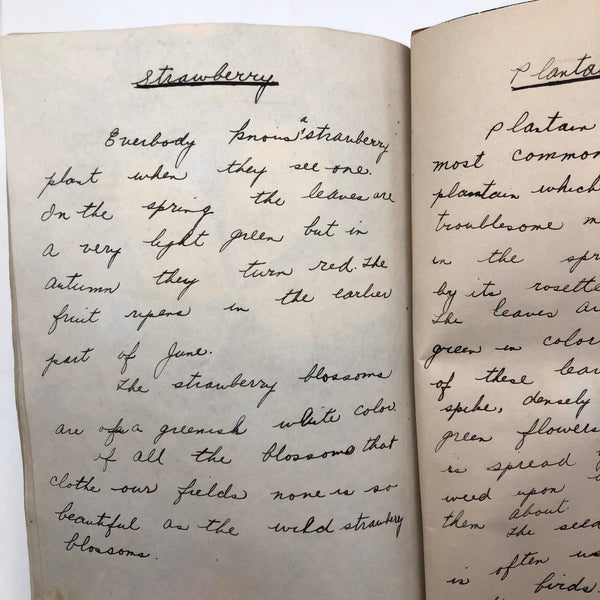 Strawberry
Everbody knows a strawberry
plant when they see one.
In the spring the leaves are
a very light green but in
autumn they turn red. The
fruit ripens in the earlier
part of June.
The strawberry blossoms
are of a greenish white color.
of all the blossoms that
clothe our fields none is so
beautiful as the wild strawberry
blossoms.
Planta
Plantain
most common
plantain which
troublesome
in the spr
by its rosette
The leaves ar
green in color
of these lea
spike, densely
green flowers
is spread
weed upon
them about.
The seed
is often us
birds.